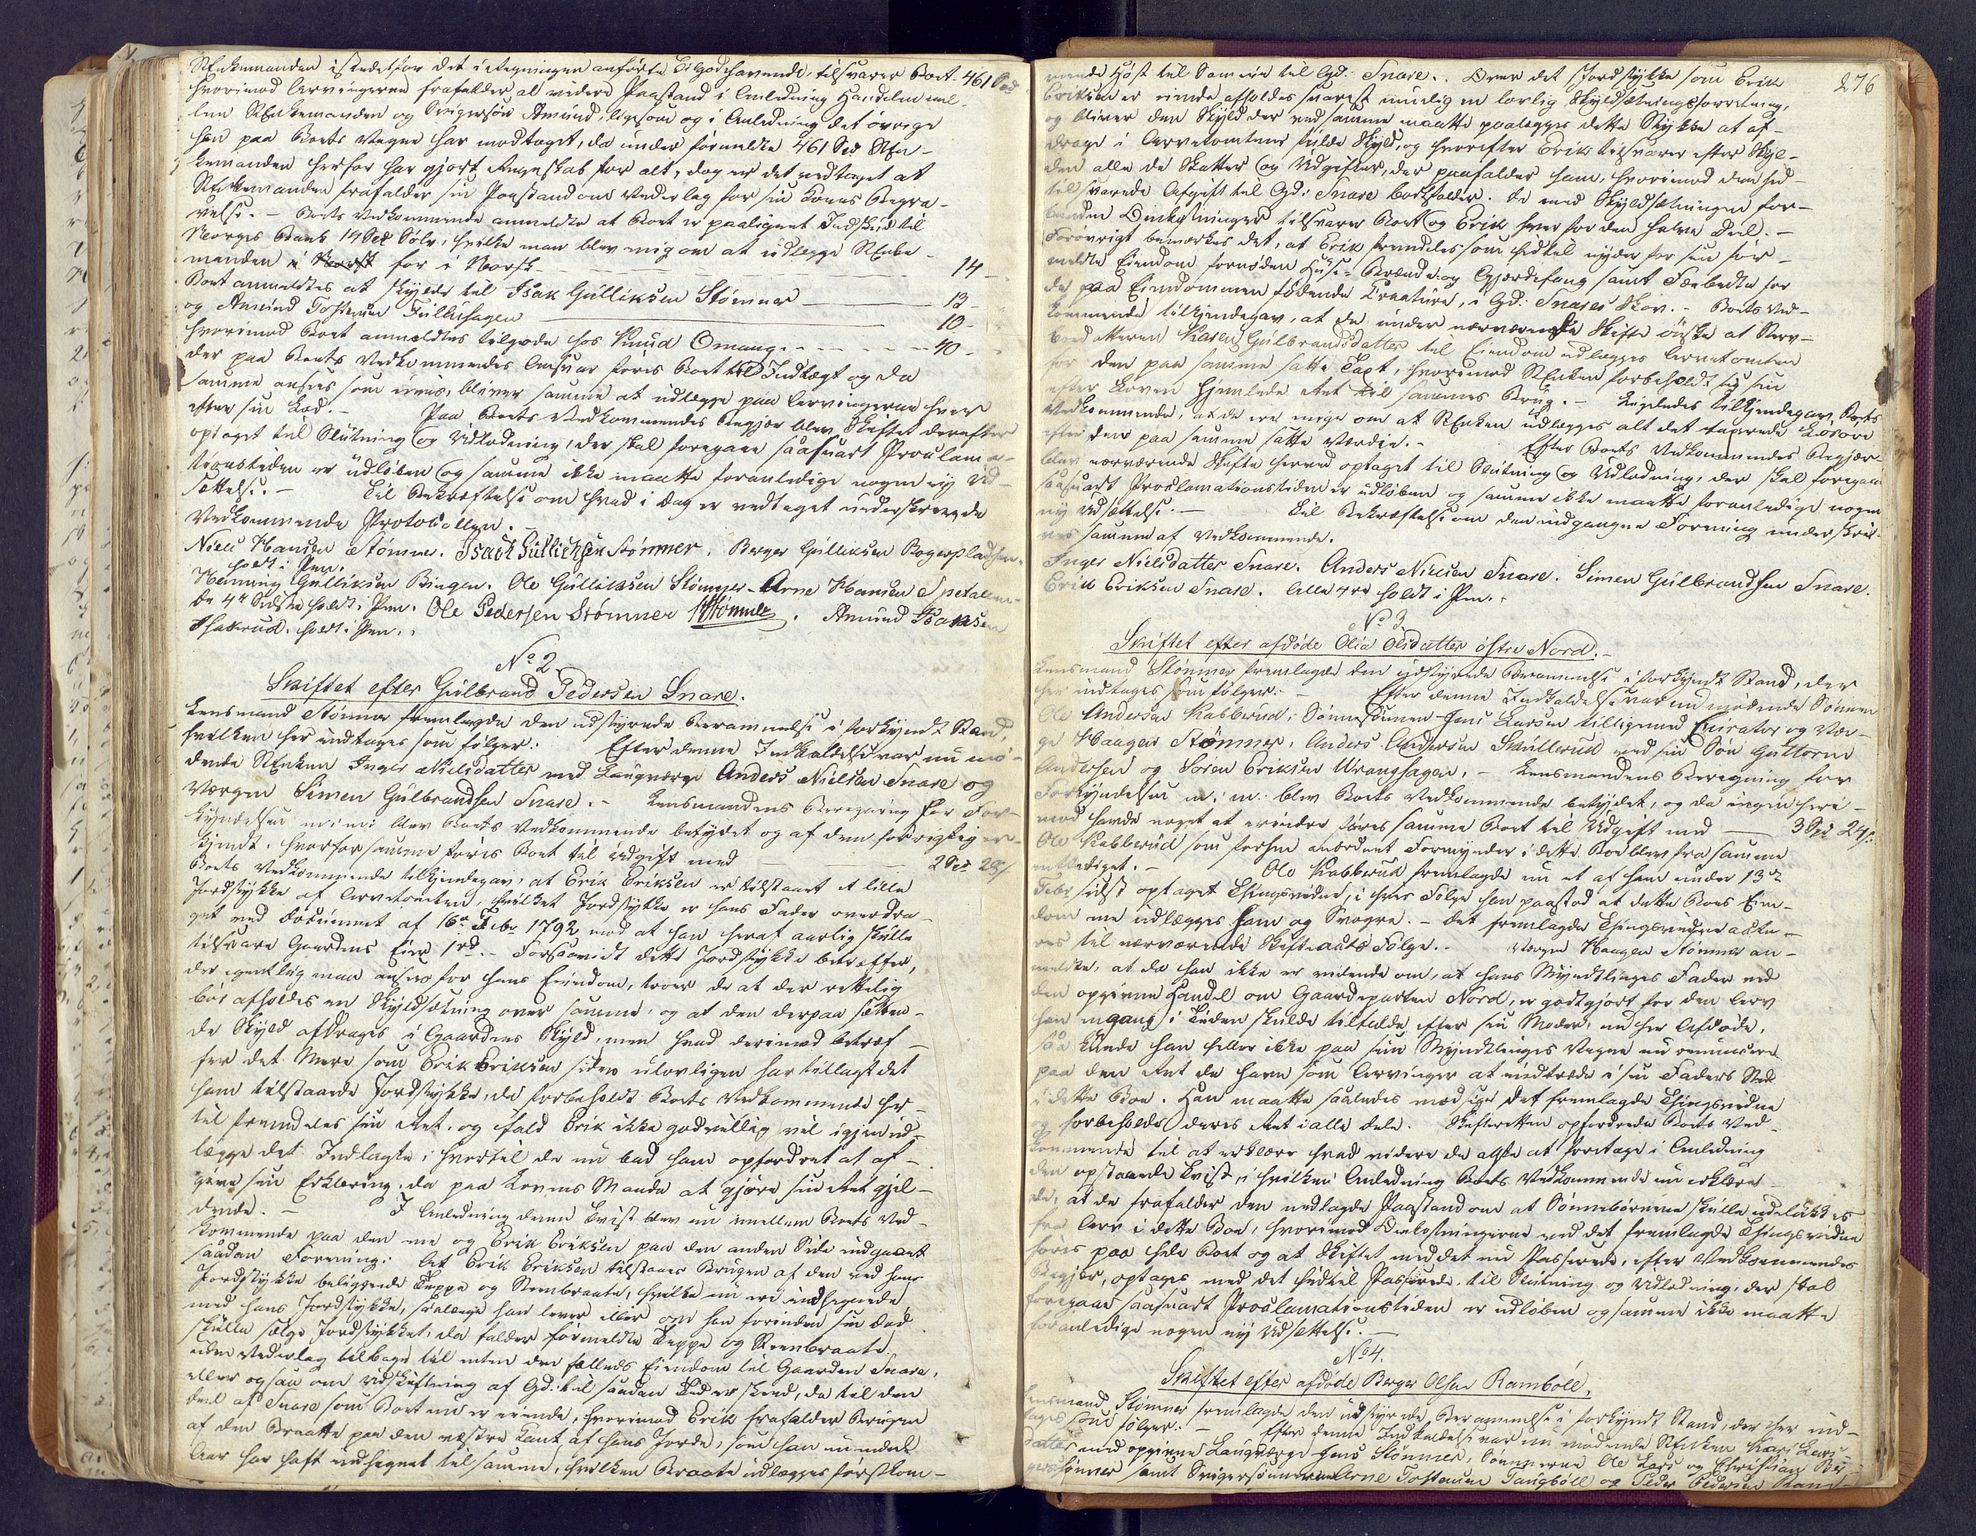 Enkemanden istedetfor det i tegningen anførte Tilgodehavende, tilsvarer Boet 461 Spd
hvorimod Arvingerne frafalder al videre Paastand i Anledning Handelen mel-
lem Enkemanden og Svigersøn Amund, ligesom og i Anledning det øvrige
han paa Boets Vegne har modtaget, da under formeldte 461 Spd En-
kemanden herfor har gjort Regnskab for alt, dog er det vedtaget at
Enkemanden frafalder sin Paastand om Vederlag for sin Kones Begra-
velse. - Boets Vedkommende anmeldte at Boet er paalignet Indskud til
Norges Bank 14 Spd Sølv, hvilke man blev enig om at udlægge Enke-
manden for i Norsk 14 -
Boet anmeldtes at skylde til Isak Gulliksen Stømner 13 -
og Amund Tostensen Fulluhagen 10 -
hvorimod Boet anmeldtes tilgode hos Knud Omang 40 -
der paa Boets Vedkommendes Ansvar føres Boet til Indtægt og da
samme ansees som uvis, bliver samme at udlægge paa Arvingerne hver
efter sin Lod. - Paa Boets Vedkommendes Begjær blev Skiftet derefter
optaget til Slutning og Udlodning, der skal foregaae saasnart Proclama-
tionstiden er udløben og samme ikke maatte foranledige nogen ny Ud-
sættelse. - Til Bekræftelse om hvad i Dag er vedtaget underskrevede
Vedkommende Protocollen.
Niels Hansen Stømner. Isach Gullichsen Stømner. Berger Gulliksen Bogerpladsen.
holdt i Pen.
Henning Gulliksen Bingen. Ole Gulliksen Stømner. Arne Hansen Spetalen
de 4re Sidste holdt i Pen. Ole Pedersen Stømner HStømner. Amund Isaksen
Ihakrud. holdt i Pen.
No 2.
Skiftet efter Gulbrand Pedersen Snare.
Lensmand Stømner fremlagde den udstyrede Berammelse i forkyndt Stand,
hvilken her indtages som følger: Efter denne Indkaldelse var nu mø-
dende Enken Inger Nielsdatter med Laugværge Anders Nielsen Snare og
Værgen Simen Gulbrandsen Snare. - Lensmandens Beregning for For-
kyndelsen m: m: blev Boets Vedkommende betydet og af dem for rigtig er-
kjendt, hvorfor samme føres Boet til Udgift med 2 Spd 28 s
Boets Vedkommende tilkjendegav, at Erik Eriksen er tilstaaet et lille
Jordstykke af Arvetomten, hvilket Jordstykke er hans Fader overdra-
get ved Document af 16de Febr 1792 mod at han heraf aarlig skulle
tilsvare Gaardens Eier 1rd. - Forsaavidt dette Jordstykke betræffer,
der egentlig maa ansees for hans Eiendom, troer de at der rettelig
bør afholdes en Skyldsætning over samme, og at den derpaa sætten-
de Skyld afdrages i Gaardens Skyld, men hvad derimod betræf-
fer det Mere som Erik Eriksen siden ulovligen har tillagt det
ham tilstaaede Jordstykke, da forbeholdt Boets Vedkommende her-
til fremdeles sin Ret, og ifald Erik ikke godvillig vil igjen ud-
lægge det Indlagte, hvortil de nu bad ham opfordret at af-
give sin Erklæring, da paa Lovens Maade at gjøre sin Ret gjel-
dende. - I Anledning denne Tvist blev nu imellem Boets Ved-
kommende paa den ene og Erik Eriksen paa den anden Side indgaaet
saadan Forening: At Erik Eriksen tilstaaes Brugen af den ved hans
Jordstykke beliggende Teppe og Steenbraate, hvilke nu ere indhegnede
med hans Jordstykke, saalænge han lever eller om han forinden sin Død
skulle sælge Jordstykket, da falder formeldte Teppe og Steenbraate
uden Vederlag tilbage til enten den fælleds Eiendom til Gaarden Snare,
eller ogsaa om Udskiftning af Gd: til saadan Tid er skeed, da til den
Deel af Snare som Boet nu er eiende, hvorimod Erik frafalder Brugen
af den Braatte paa den vestre Kant af hans Jorde, som han nu endeel
Aar har haft indhegnet til samme, hvilken Braate udlægges førstkom-
276
mende Høst til Sameie til Gd: Snare. - Over det Jordstykke som Erik
Eriksen er eiende afholdes snarest muelig en lovlig Skyldsætningsforretning,
og bliver den Skyld der ved samme maatte paalægges dette Stykke at af-
drage i Arvetomtens fulde Skyld, og hvorefter Erik tilsvarer efter Skyl-
den alle de Skatter og Udgifter, der paafalder ham, hvorimod den hid
til svarede Afgift til Gd: Snare bortfalder. De med Skyldsætningen for-
bundne Omkostninger tilsvarer Boet og Erik hver for den halve Deel. -
Forøvrigt bemærkes det, at Erik fremdeles som hidtil nyder for sin for-
meldte Eiendom fornøden Huse- Brænde- og Gjærdefang samt Fæebeite for
de paa Eiendommen fødende Creature, i Gd: Snares Skov. - Boets Ved-
kommende tilkjendegav, at de under nærværende Skifte ønske at Ster-
boedatteren Karen Gulbrandsdatter til Eiendom udlægges Arvetomten
for den paa samme satte Taxt, hvorimod Enken forbeholdt sig sin
efter Loven hjemlede Ret til sammes Brug. - Ligeledes tilkjendegav Boets
Vedkommende, at de ere enige om at Enken udlægges alt det taxerede Løsøre
efter den paa samme satte Værdie. - Efter Boets Vedkommendes Begjær
blev nærværende Skifte herved optaget til Slutning og Udlodning, der skal foregaae
saasnart Proclamationstiden er udløben og samme ikke maatte foranledige nogen
ny Udsættelse. - Til Bekræftelse om den indgangne Forening underskri-
ves samme af Vedkommende.
Inger Nielsdatter Snare. Anders Nielsen Snare. Simen Gulbrandsen Snare.
Erik Eriksen Snare. Alle 4re holdt i Pen.
No 3.
Skiftet efter afdøde Olia Olsdatter østre Nord.
Lensmand Stømner fremlagde den udstyrede Berammelse i forkyndt Stand, der
her indtages som følger: - Efter denne Indkaldelse var nu mødende Sønnen
Ole Andersen Kabberud, Sønnesønnen Jens Larsen tilligemed Curator og Vær-
ge Haagen Stømner, Anders Andersen Skullerud med sin Søn Guttorm
Andersen og Søren Eriksen Wranghagen. - Lensmandens Beregning for
Forkyndelsen m: m: blev Boets Vedkommende betydet, og da ingen heri-
mod havde noget at erindre føres samme Boet til Udgift med 3 Spd 24 s
Ole Kabberud som forhen anordnet Formynder i dette Boe blev fra samme
entlediget. - Ole Kabberud fremlagde nu et af ham under 13de
Febr sidst optaget Thingsvidne, i hvis Følge han paastod at dette Boes Eien-
dom me udlægges ham og Svogre. - Det fremlagde Thingsvidne acte-
res til nærværende Skifteacts Følge. - Værgen Haagen Stømner an-
meldte, at da han ikke er vidende om, at hans Myndtlinges Fader ved
den opgivne Handel om Gaardeparten Nord, er godtgjort for den Arv
han engang i Tiden skulde tilfalde efter sin Moder, nu her Afdøde,
saa kunde han heller ikke paa sin Myndtlinges Vegne nu renuncere
paa den Ret de have som Arvinger at indtræde i sin Faders Sted
i dette Boe. Han maatte saaledes modsige det fremlagde Thingsvidne
og forbeholde deres Ret i alle Dele. Skifteretten opfordrede Boets Ved-
kommende til at erklære hvad videre de agte at foretage i Anledning
den opstaaede Tvist, i hvilken Anledning Boets Vedkommende nu erklære-
de, at de frafalder den nedlagde Paastand om at Sønnebørnene skulle udelukkes
fra Arv i dette Boe, hvorimod Omkostningerne ved det fremlagde Thingsvidne
føres paa hele Boet og at Skiftet med det nu Passerede, efter Vedkommendes
Begjær, optages med det hidtil Passerede, til Slutning og Udlodning, der skal
foregaae saasnart Proclamationstiden er udløben og samme ikke maatte
foranledige nogen ny Udsættelse. -
No 4.
Skiftet efter afdøde Berger Olsen Ramböle.
Lensmand Stømner fremlagde den udstyrede Berammelse i forkyndt Stand, der her ind-
tages som følger. - Efter denne Indkaldelse var nu mødende Enken Kari Lars-
datter med opgivne Laugværge Jens Stømner, Sønnerne Ole Lars og Christian Ber-
gersønner samt Svigersønnerne Arne Tostensen Taugböll og Peder Pedersen Ram-